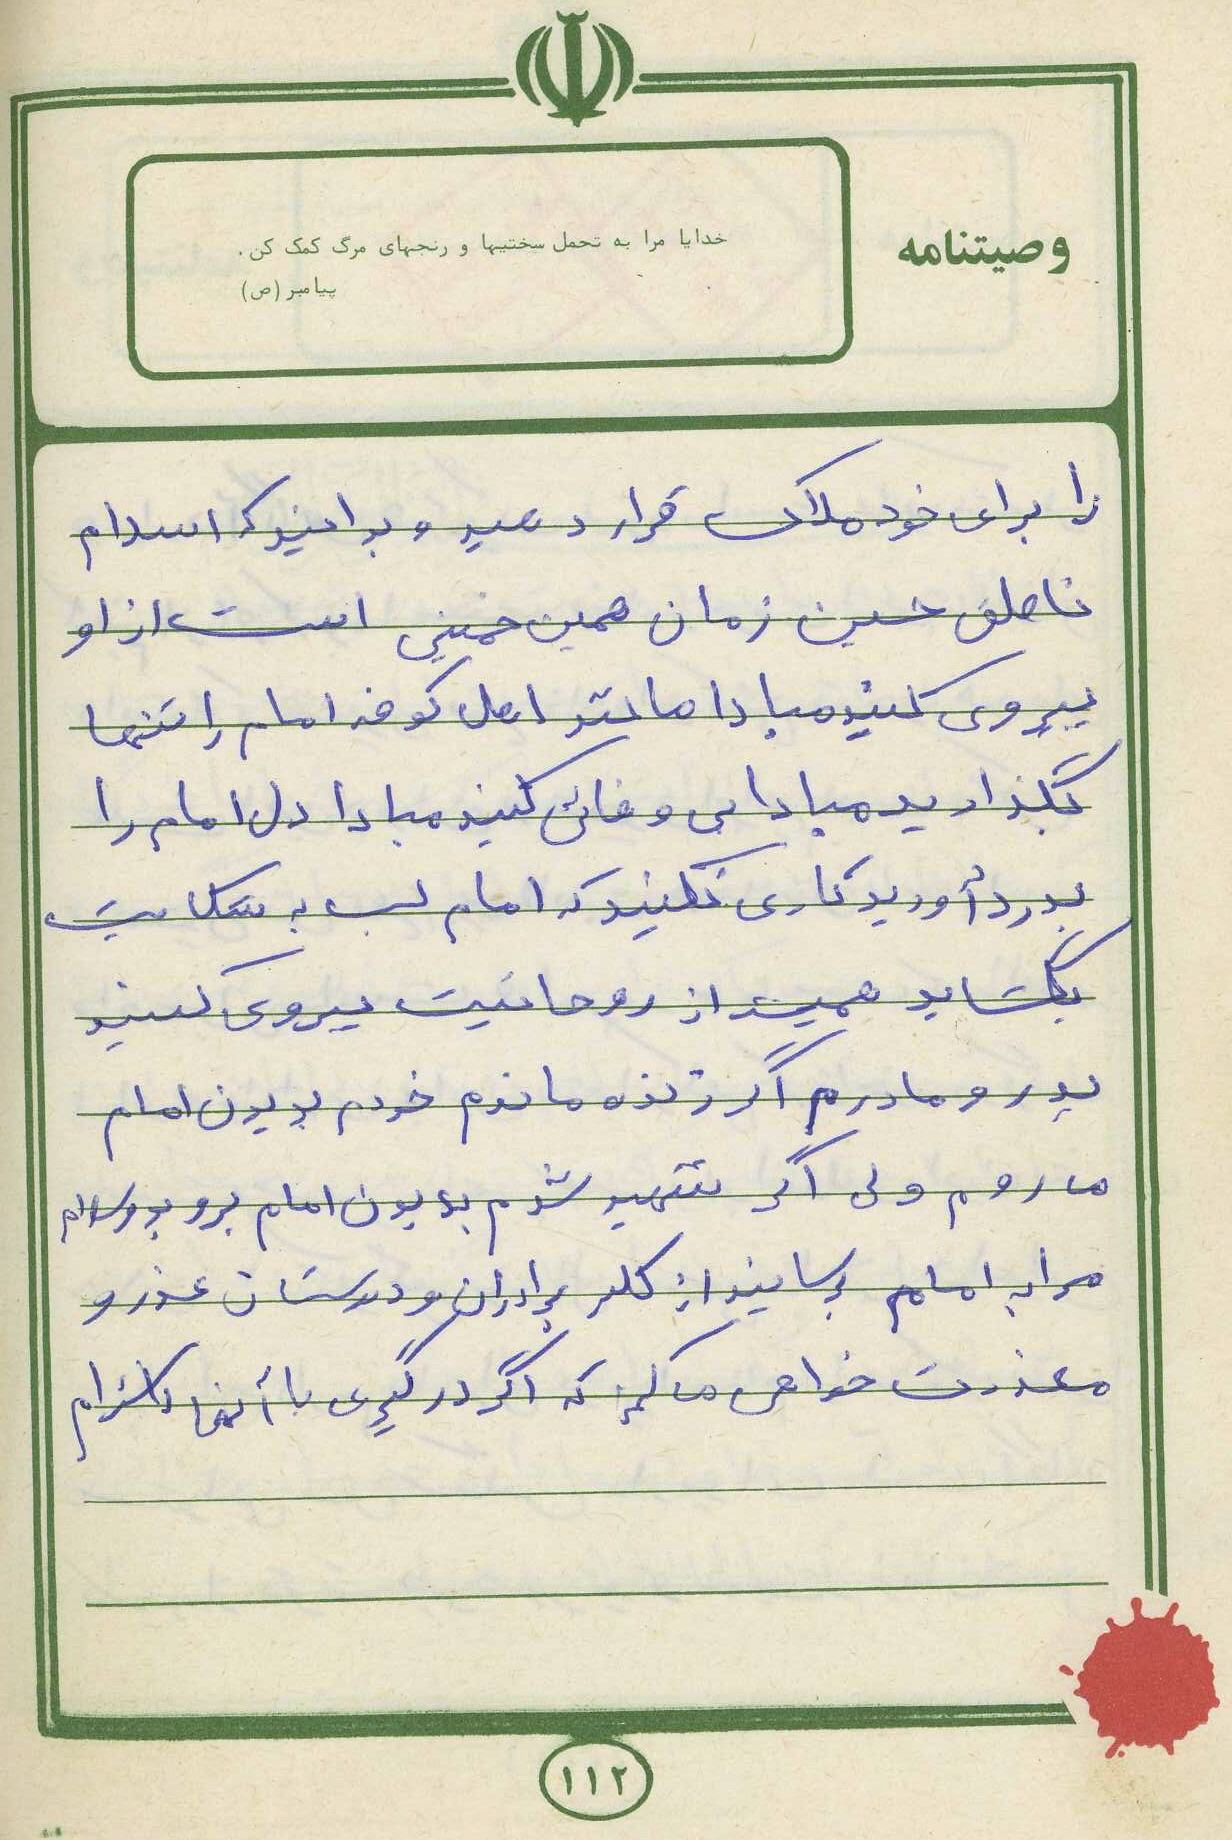 وصیتنامه
خدایا مرا به تحمل سختیها و رنجهای مرگ کمک کن .
پیامبر (ص)
را برای خود ملاک قرار دهید و بدانید که اسلام
ناطق حسین زمان همین خمینی است از او
پیروی کنید مبادا مانند اهل کوفه امام را تنها
بگذارید مبادا بی وفائی کنید مبادا دل امام را
بدرد آورید کاری نکنید که امام لب به شکایت
بگشاید همیشه از روحانیت پیروی کنید
پدر و مادرم اگر زنده ماندم خودم بدیدن امام
ما روم ولی اگر شهید شدم بدیدن امام بروید و سلام
مرا به امام برسانید از کلیه برادران و دوستان عذر و
معذرت خواهی ما کنم که اگر درگیری با آنها داشته‌ام
۱۱۲